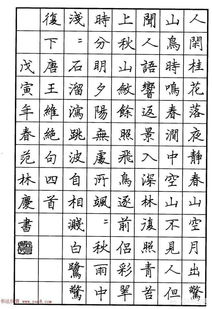 人閒桂花落夜靜春山空月出驚
山鳥時鳴春澗中空山不見人但
聞人語響返景入深林復照青苔
上秋山斂餘照飛鳥逐前侶彩翠
時分明夕陽無處所颯〻秋雨中
淺〻石溜瀉跳波自相濺白鷺驚
復下唐王維絕句四首
戊寅年春范林慶書